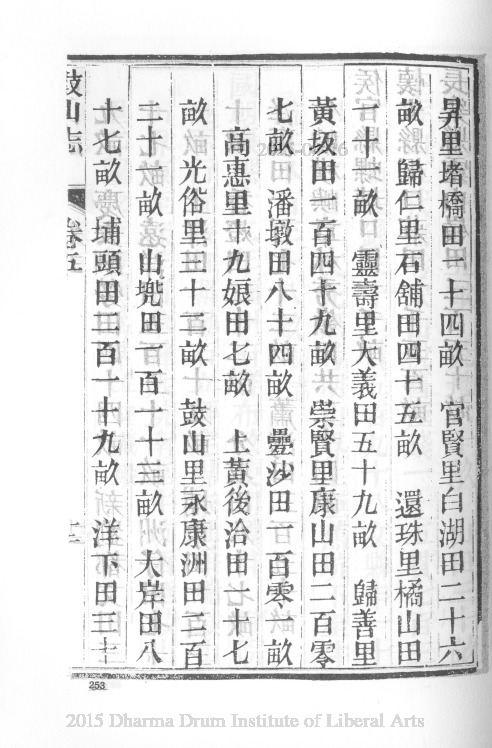 昇里塔橋田二十四畝 官賢里白湖田二十六
畝 歸仁里石舖田四十五畝 還珠里橘山田
一十畝 靈壽里大義田五十九畝 歸善里
黃坂田一百四十九畝 崇賢里康山田二百零
七畝 潘墩田八十四畝 疊沙田一百零一畝
高惠里十九娘田七畝 上黃後洽田一十七
畝 光俗里三十二畝 鼓山里永康洲田二百
二十一畝 山兠田一百一十三畝 大岸田八
十七畝 埔頭田二百一十九畝 洋下田三十
鼓山志 卷五
253
2015 Dharma Drum Institute of Liberal Arts